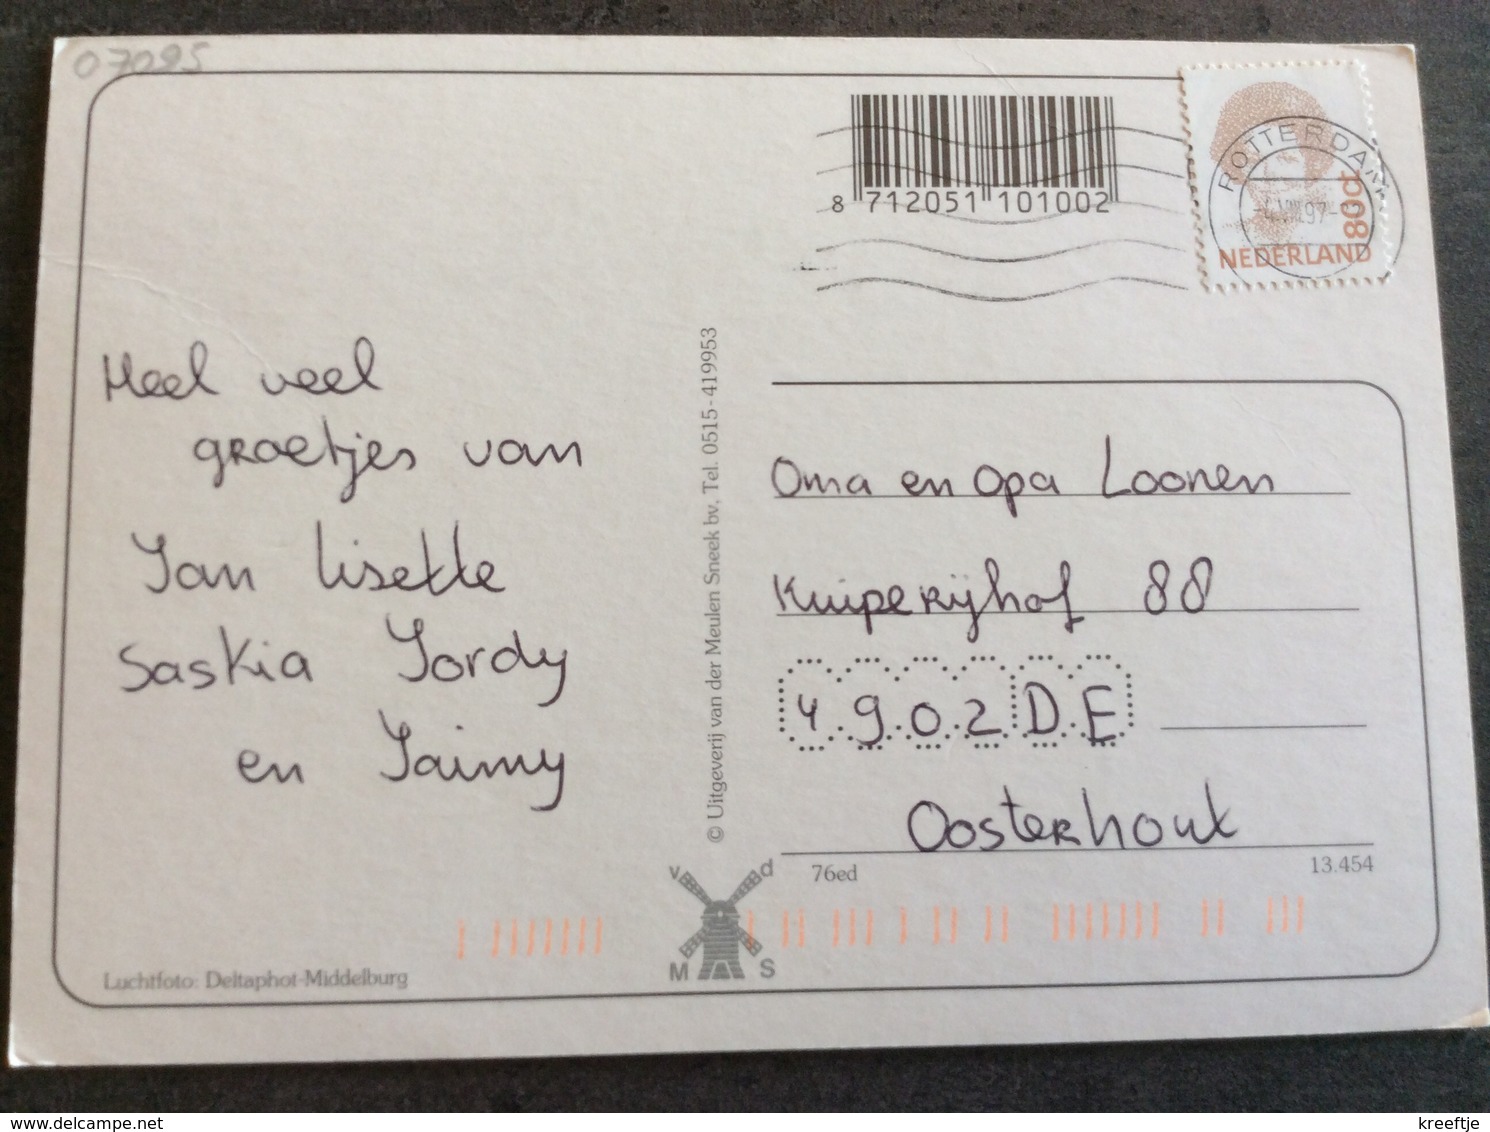 07095
8 712051 101002
ROTTERDAM
VIII.97
80ct
NEDERLAND
Heel veel
groetjes van
Jan Lisette
Saskia Jordy
en Jaimy
© Uitgeverij van der Meulen Sneek bv. Tel. 0515-419953
Oma en opa Loonen
Kuiperijhof 88
4902 DE
Oosterhout
76ed
13.454
v d
M S
Luchtfoto: Deltaphot-Middelburg
kreeftje